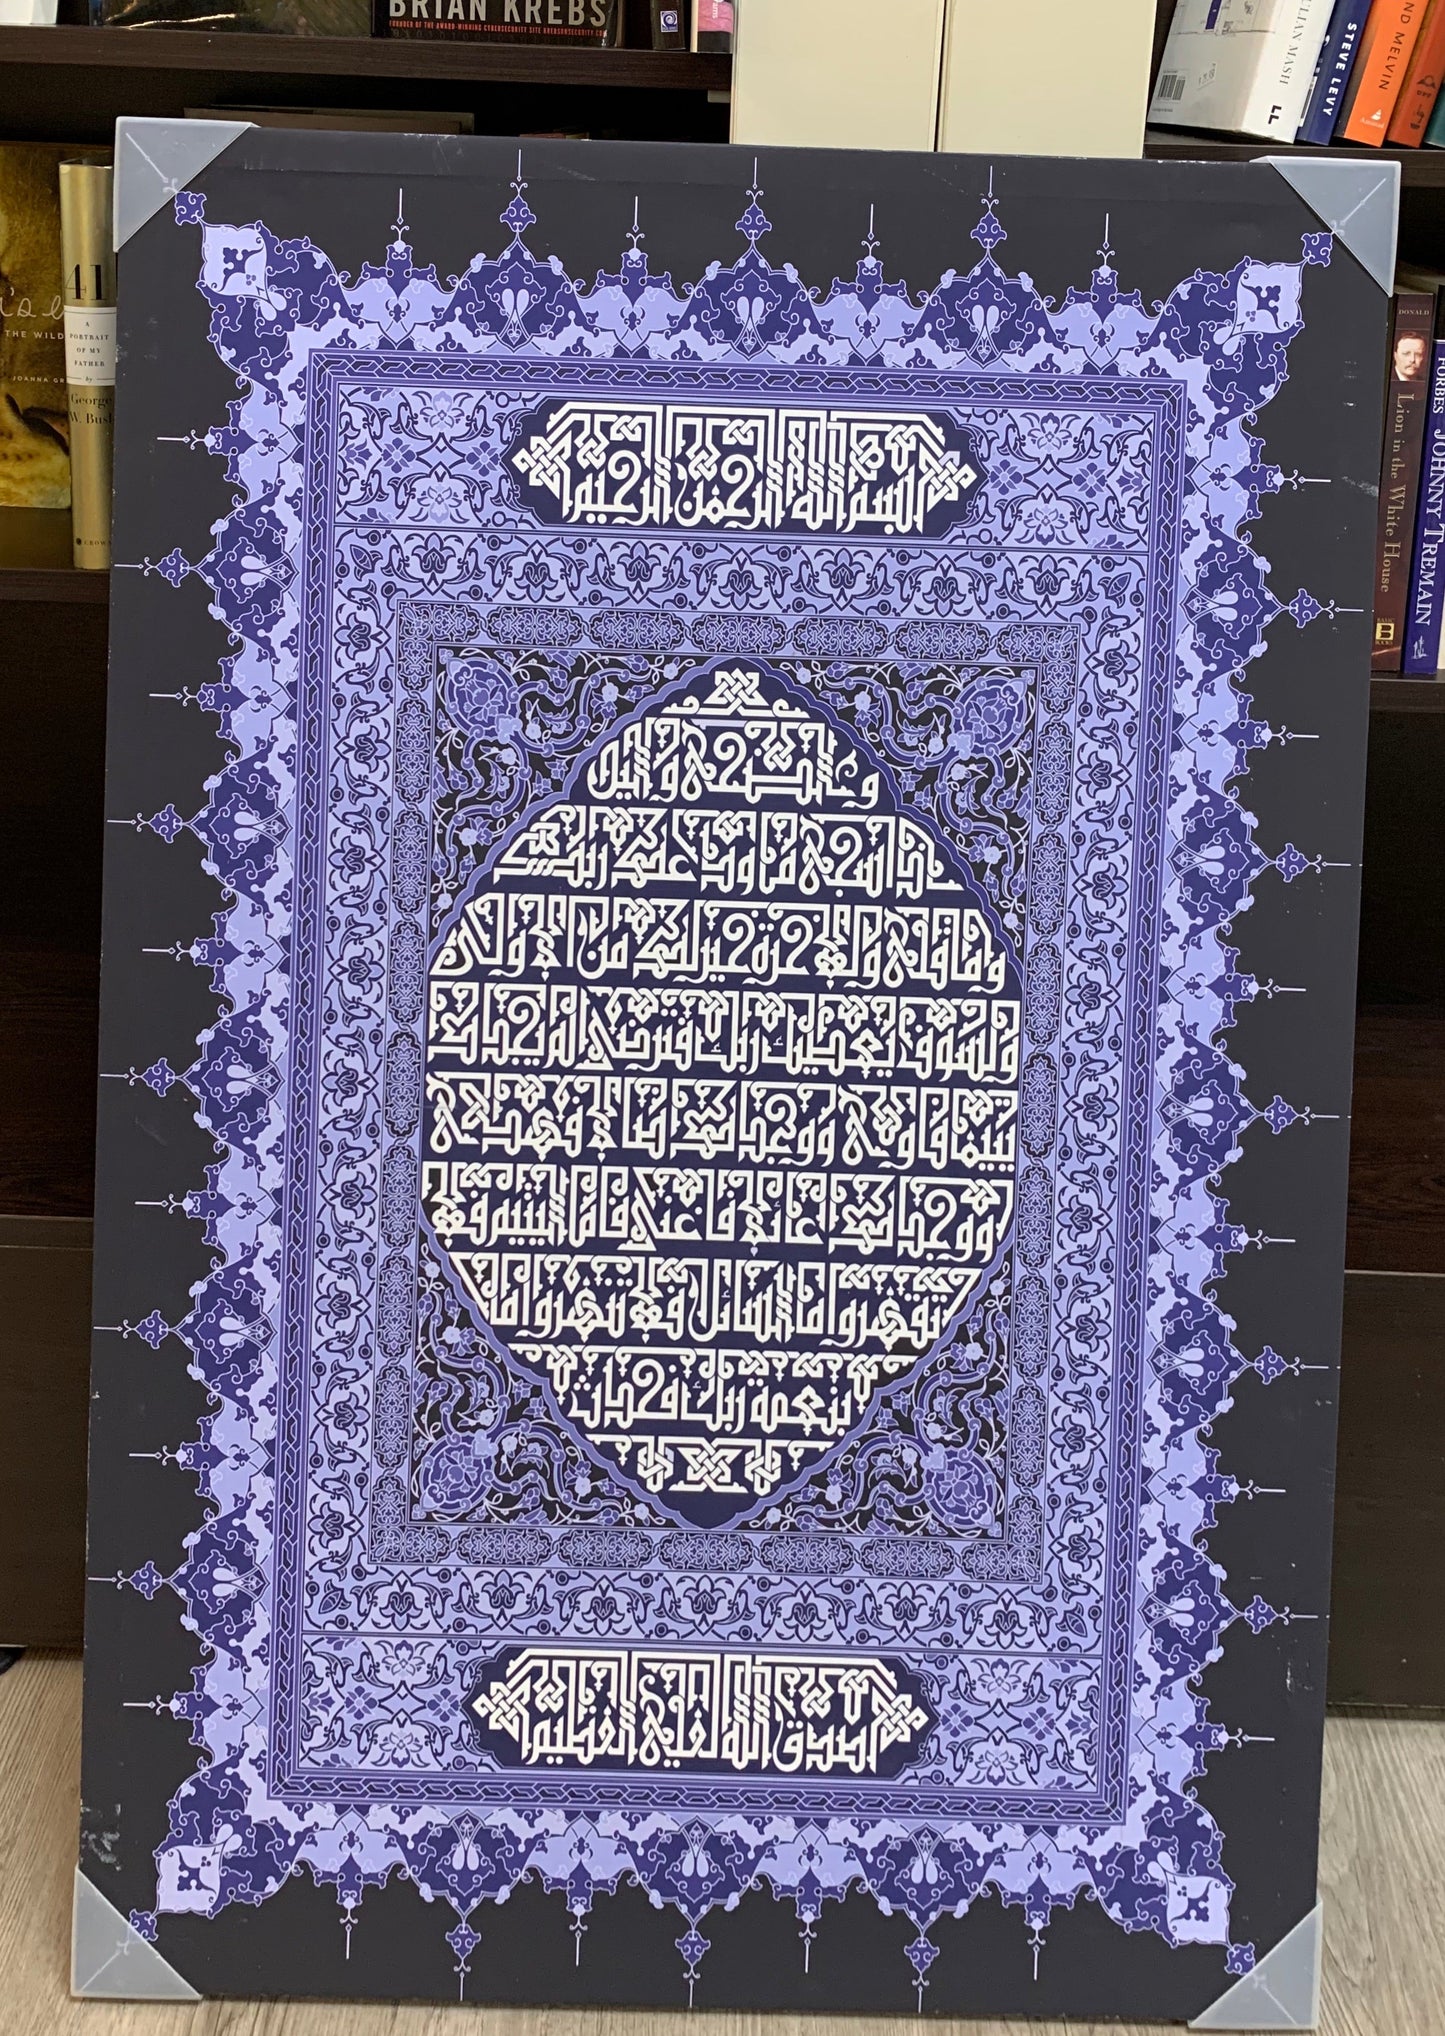 BRIAN KREBS
FOUNDER OF THE AWARD-WINNING CYBERSECURITY SITE KREBSONSECURITY.COM
ULIAN MASH
STEVE LEVY
ND MELVIN
41
A PORTRAIT OF MY FATHER
by
George W. Bush
CROWN
THE WILD
JOANNA GR
بسم الله الرحمن الرحيم
والضحى واليل
إذا سجى ما ودعك ربك
وما قلى وللآخرة خير لك من الأولى
ولسوف يعطيك ربك فترضى ألم يجدك
يتيما فآوى ووجدك ضالا فهدى
ووجدك عائلا فأغنى فأما اليتيم فلا
تقهر وأما السائل فلا تنهر وأما
بنعمة ربك فحدث
صدق الله العلي العظيم
DONALD
Lion in the White House
BASIC BOOKS
FORBES JOHNNY TREMAIN